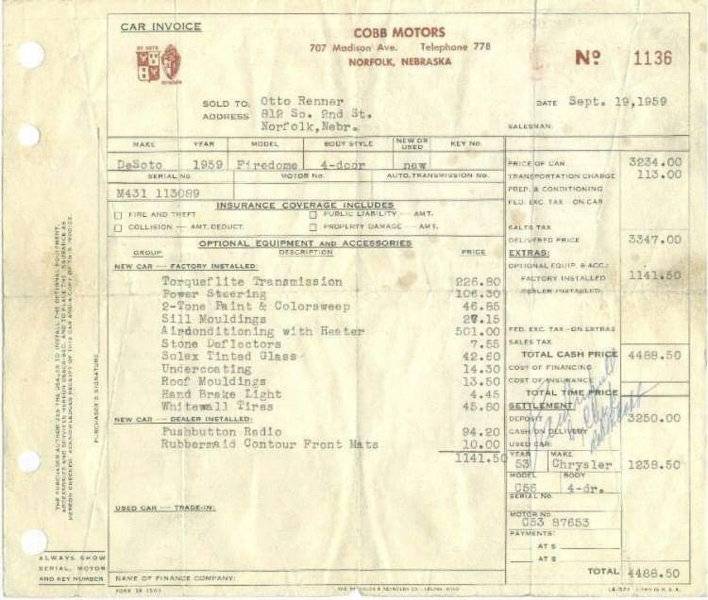 CAR INVOICE
COBB MOTORS
707 Madison Ave. Telephone 778
NORFOLK, NEBRASKA
No 1136
SOLD TO: Otto Renner
ADDRESS 812 So. 2nd St.
Norfolk, Nebr.
DATE Sept. 19,1959
SALESMAN:
MAKE YEAR MODEL BODY STYLE NEW OR USED KEY NO.
DeSoto 1959 Firedome 4-door new
SERIAL NO. MOTOR NO. AUTO. TRANSMISSION NO.
M431 113089
INSURANCE COVERAGE INCLUDES
FIRE AND THEFT PUBLIC LIABILITY — AMT.
COLLISION — AMT. DEDUCT. PROPERTY DAMAGE — AMT.
OPTIONAL EQUIPMENT AND ACCESSORIES
GROUP DESCRIPTION PRICE
NEW CAR — FACTORY INSTALLED:
Torqueflite Transmission 226.80
Power Steering 106.30
2-Tone Paint & Colorsweep 46.85
Sill Mouldings 27.15
Airdonditioning with Heater 501.00
Stone Deflectors 7.55
Solex Tinted Glass 42.60
Undercoating 14.30
Roof Mouldings 13.50
Hand Brake Light 4.45
Whitewall Tires 45.80
NEW CAR — DEALER INSTALLED:
Pushbutton Radio 94.20
Rubbermaid Contour Front Mats 10.00
1141.50
USED CAR — TRADE-IN:
NAME OF FINANCE COMPANY:
PRICE OF CAR 3234.00
TRANSPORTATION CHARGE 113.00
PREP. & CONDITIONING
FED. EXC. TAX - ON CAR
SALES TAX
DELIVERED PRICE 3347.00
EXTRAS:
OPTIONAL EQUIP. & ACC.:
FACTORY INSTALLED 1141.50
DEALER INSTALLED
FED. EXC. TAX - ON EXTRAS
SALES TAX
TOTAL CASH PRICE 4488.50
COST OF FINANCING
COST OF INSURANCE
TOTAL TIME PRICE
SETTLEMENT:
DEPOSIT 3250.00
CASH ON DELIVERY
USED CAR:
YEAR MAKE
53 Chrysler 1238.50
MODEL BODY
C56 4-dr.
SERIAL NO.
MOTOR NO.
C53 87653
PAYMENTS:
AT $
AT $
TOTAL 4488.50
PURCHASER'S SIGNATURE
ALWAYS SHOW
SERIAL, MOTOR
AND KEY NUMBER